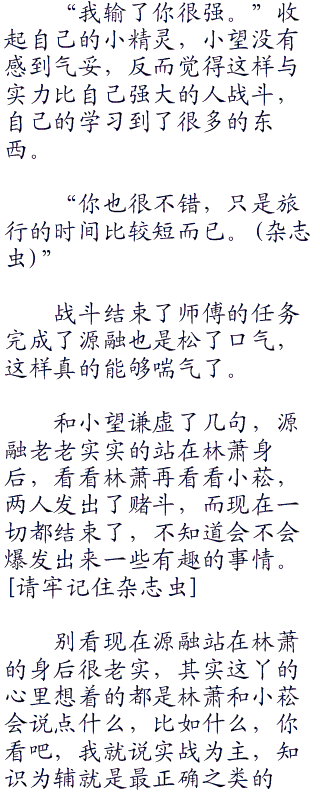 “我输了你很强。”收
起自己的小精灵，小望没有
感到气妥，反而觉得这样与
实力比自己强大的人战斗，
自己的学习到了很多的东
西。
“你也很不错，只是旅
行的时间比较短而已。(杂志
虫)”
战斗结束了师傅的任务
完成了源融也是松了口气，
这样真的能够喘气了。
和小望谦虚了几句，源
融老老实实的站在林萧身
后，看看林萧再看看小菘，
两人发出了赌斗，而现在一
切都结束了，不知道会不会
爆发出来一些有趣的事情。
[请牢记住杂志虫]
别看现在源融站在林萧
的身后很老实，其实这丫的
心里想着的都是林萧和小菘
会说点什么，比如什么，你
看吧，我就说实战为主，知
识为辅就是最正确之类的